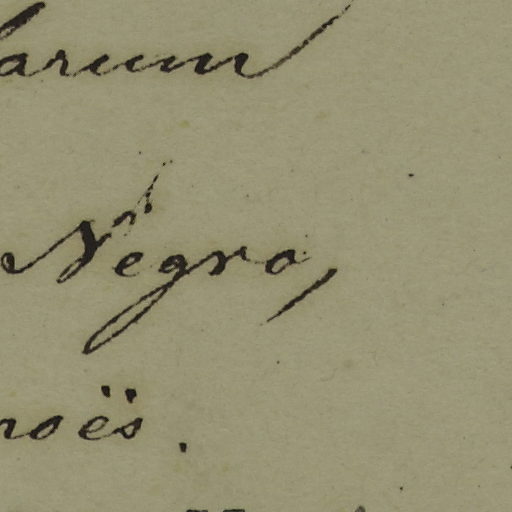 arum
Negro,
noës.